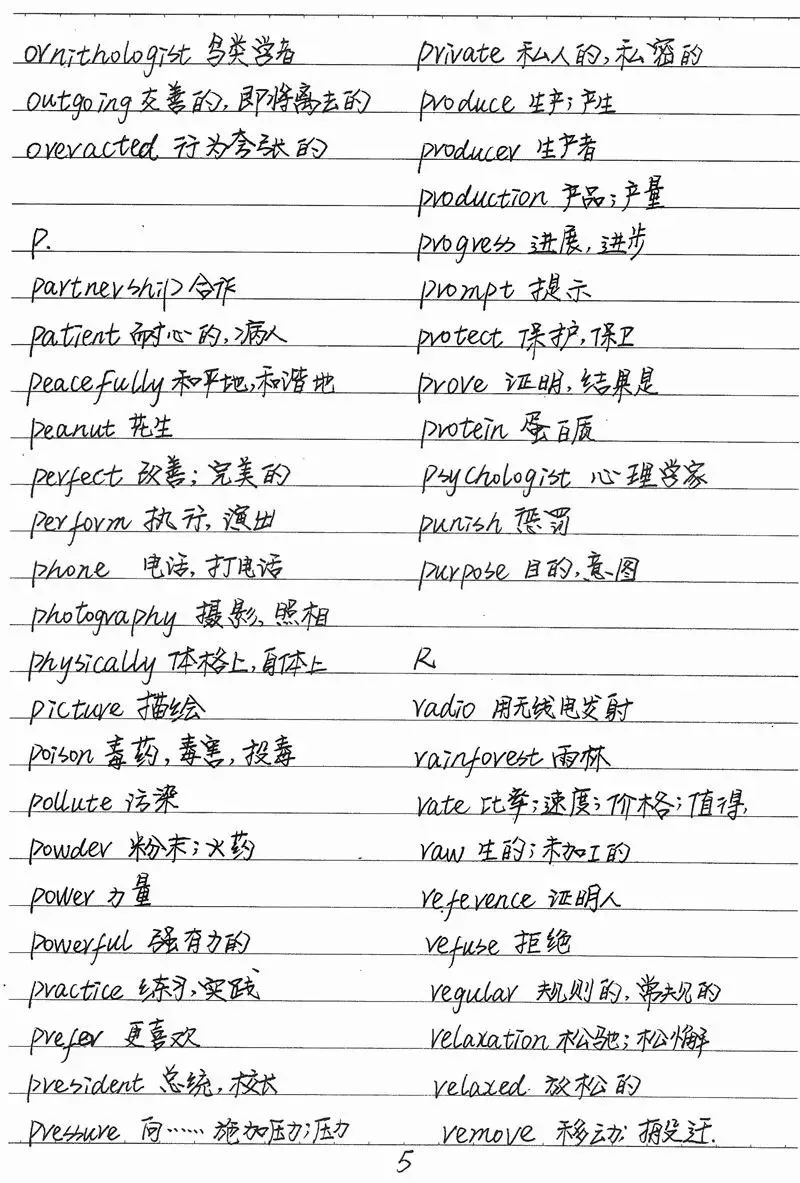 ornithologist 鸟类学者
outgoing 交善的，即将离去的
overacted 行为夸张的
P.
partnership 合作
patient 耐心的，病人
peacefully 和平地，和谐地
peanut 花生
perfect 改善；完美的
perform 执行，演出
phone 电话，打电话
photography 摄影，照相
physically 体格上，身体上
picture 描绘
poison 毒药，毒害，投毒
pollute 污染
powder 粉末；火药
power 力量
powerful 强有力的
practice 练习，实践
prefer 更喜欢
president 总统，校长
pressure 向……施加压力；压力
private 私人的，私密的
produce 生产；产生
producer 生产者
production 产品；产量
progress 进展，进步
prompt 提示
protect 保护，保卫
prove 证明，结果是
protein 蛋白质
psychologist 心理学家
punish 惩罚
purpose 目的，意图
R
radio 用无线电发射
rainforest 雨林
rate 比率；速度；价格；值得，
raw 生的；未加工的
reference 证明人
refuse 拒绝
regular 规则的，常规的
relaxation 松驰；松懈
relaxed 放松的
remove 移动；搬迁．
5